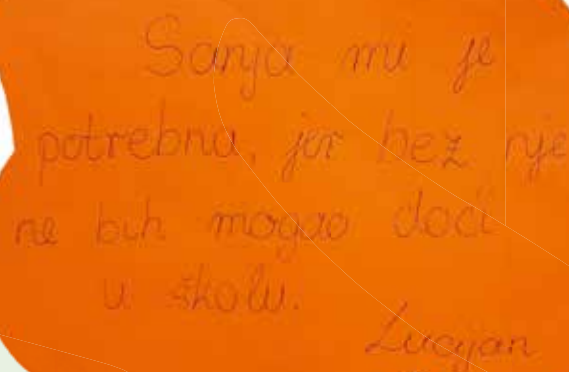 Sanja mi je
potrebna, jer bez nje
ne bih mogao doći
u školu.
Lucijan